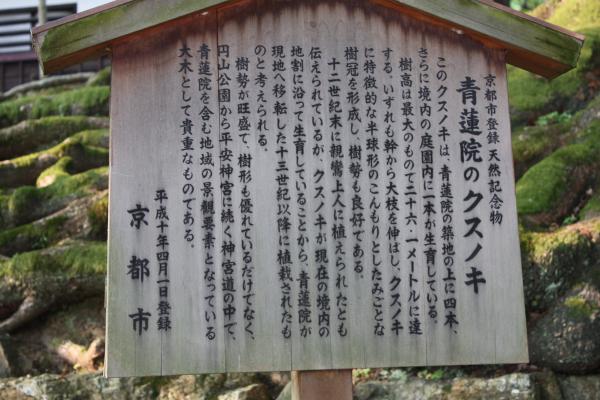 京都市登録 天然記念物
青蓮院のクスノキ
このクスノキは、青蓮院の築地の上に四本、
さらに境内の庭園内に一本が生育している。
樹高は最大のもので二十六・一メートルに達
する。いずれも幹から大枝を伸ばし、クスノキ
に特徴的な半球形のこんもりとしたみごとな
樹冠を形成し、樹勢も良好である。
十二世紀末に親鸞上人に植えられたとも
伝えられているが、クスノキが現在の境内の
地割に沿って生育していることから、青蓮院が
現地へ移転した十三世紀以降に植栽されたも
のと考えられる。
樹勢が旺盛で、樹形も優れているだけでなく、
円山公園から平安神宮に続く神宮道の中で、
青蓮院を含む地域の景観要素となっている
大木として貴重なものである。
平成十年四月一日登録
京都市